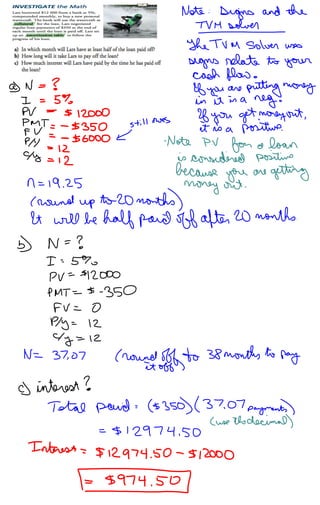 INVESTIGATE the Math
Lars borrowed $12 000 from a bank at 5%,
compounded monthly, to buy a new personal
watercraft. The bank will use the watercraft as
collateral for the loan. Lars negotiated
regular loan payments of $350 at the end of
each month until the loan is paid off. Lars set
up an amortization table to follow the
progress of his loan.
a) In which month will Lars have at least half of the loan paid off?
b) How long will it take Lars to pay off the loan?
c) How much interest will Lars have paid by the time he has paid off
the loan?
Note: Signs and the
TVM solver
The TVM Solver uses
signs relate to your
cash flow.
If you are putting money
in it is a neg.
If you get money out,
it is a positive.
·Note PV for a loan
is considered positive
because you are getting
money out.
a) N = ?
I = 5%
PV = $12000
PMT = -$350
FV = -$6000 still owes
P/y = 12
C/y = 12
n = 19.25
(round up to 20 months)
It will be half paid off after 20 months
b) N = ?
I = 5%
PV = $12000
PMT = $-350
FV = 0
P/y = 12
C/y = 12
N = 37.07 (round off to 38 months to pay
it off)
c) interest?
Total paid = ($350)(37.07 payments)
(use the decimal)
= $12974.50
Interest = $12974.50 - $12000
= $974.50